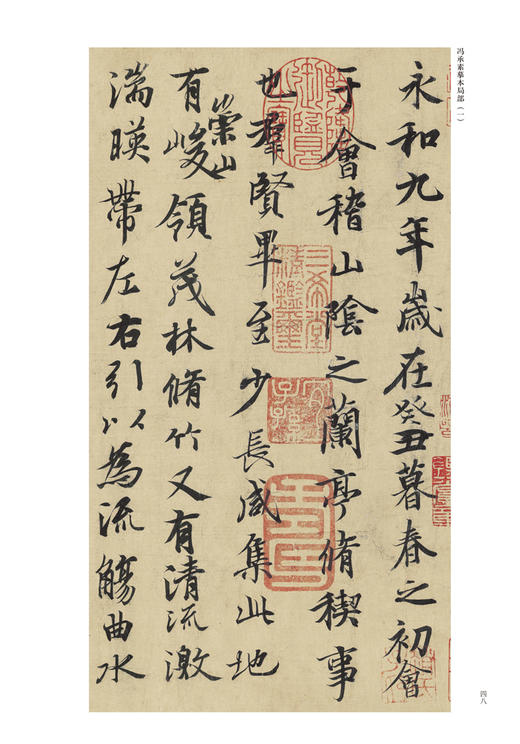 冯承素摹本局部（一）
永和九年歲在癸丑暮春之初會
于會稽山陰之蘭亭脩稧事
也羣賢畢至少長咸集此地
有崇山峻領茂林脩竹又有清流激
湍暎帶左右引以為流觴曲水
四八